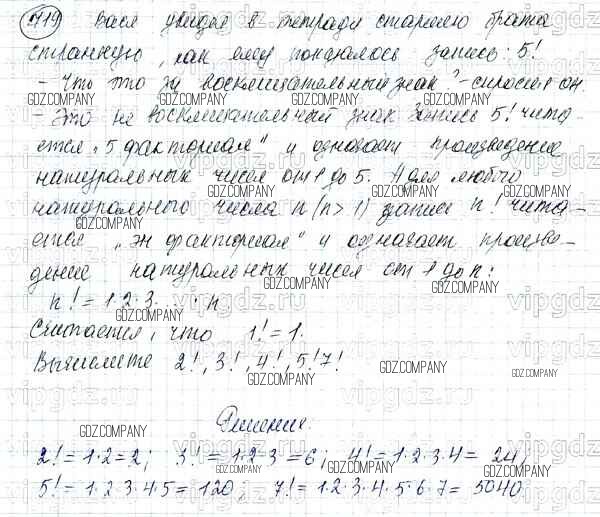 719 Вася увидел в тетради старшего брата
странную, как ему показалось запись: 5!
- Что это за восклицательный знак? - спросил он.
- Это не восклицательный знак Запись 5! чита-
ется „5 факториал" и означает произведение
натуральных чисел от 1 до 5. А для любого
натурального числа n (n > 1) запись n! чита-
ется „эн факториал" и означает произве-
дение натуральных чисел от 1 до n:
n! = 1·2·3. ... · n
Считается, что 1! = 1.
Вычислите 2!, 3!, 4!, 5! 7!
Решение:
2! = 1·2 = 2; 3! = 1·2·3 = 6; 4! = 1·2·3·4 = 24,
5! = 1·2·3·4·5 = 120; 7! = 1·2·3·4·5·6·7 = 5040
GDZ.COMPANY
vipgdz.ru